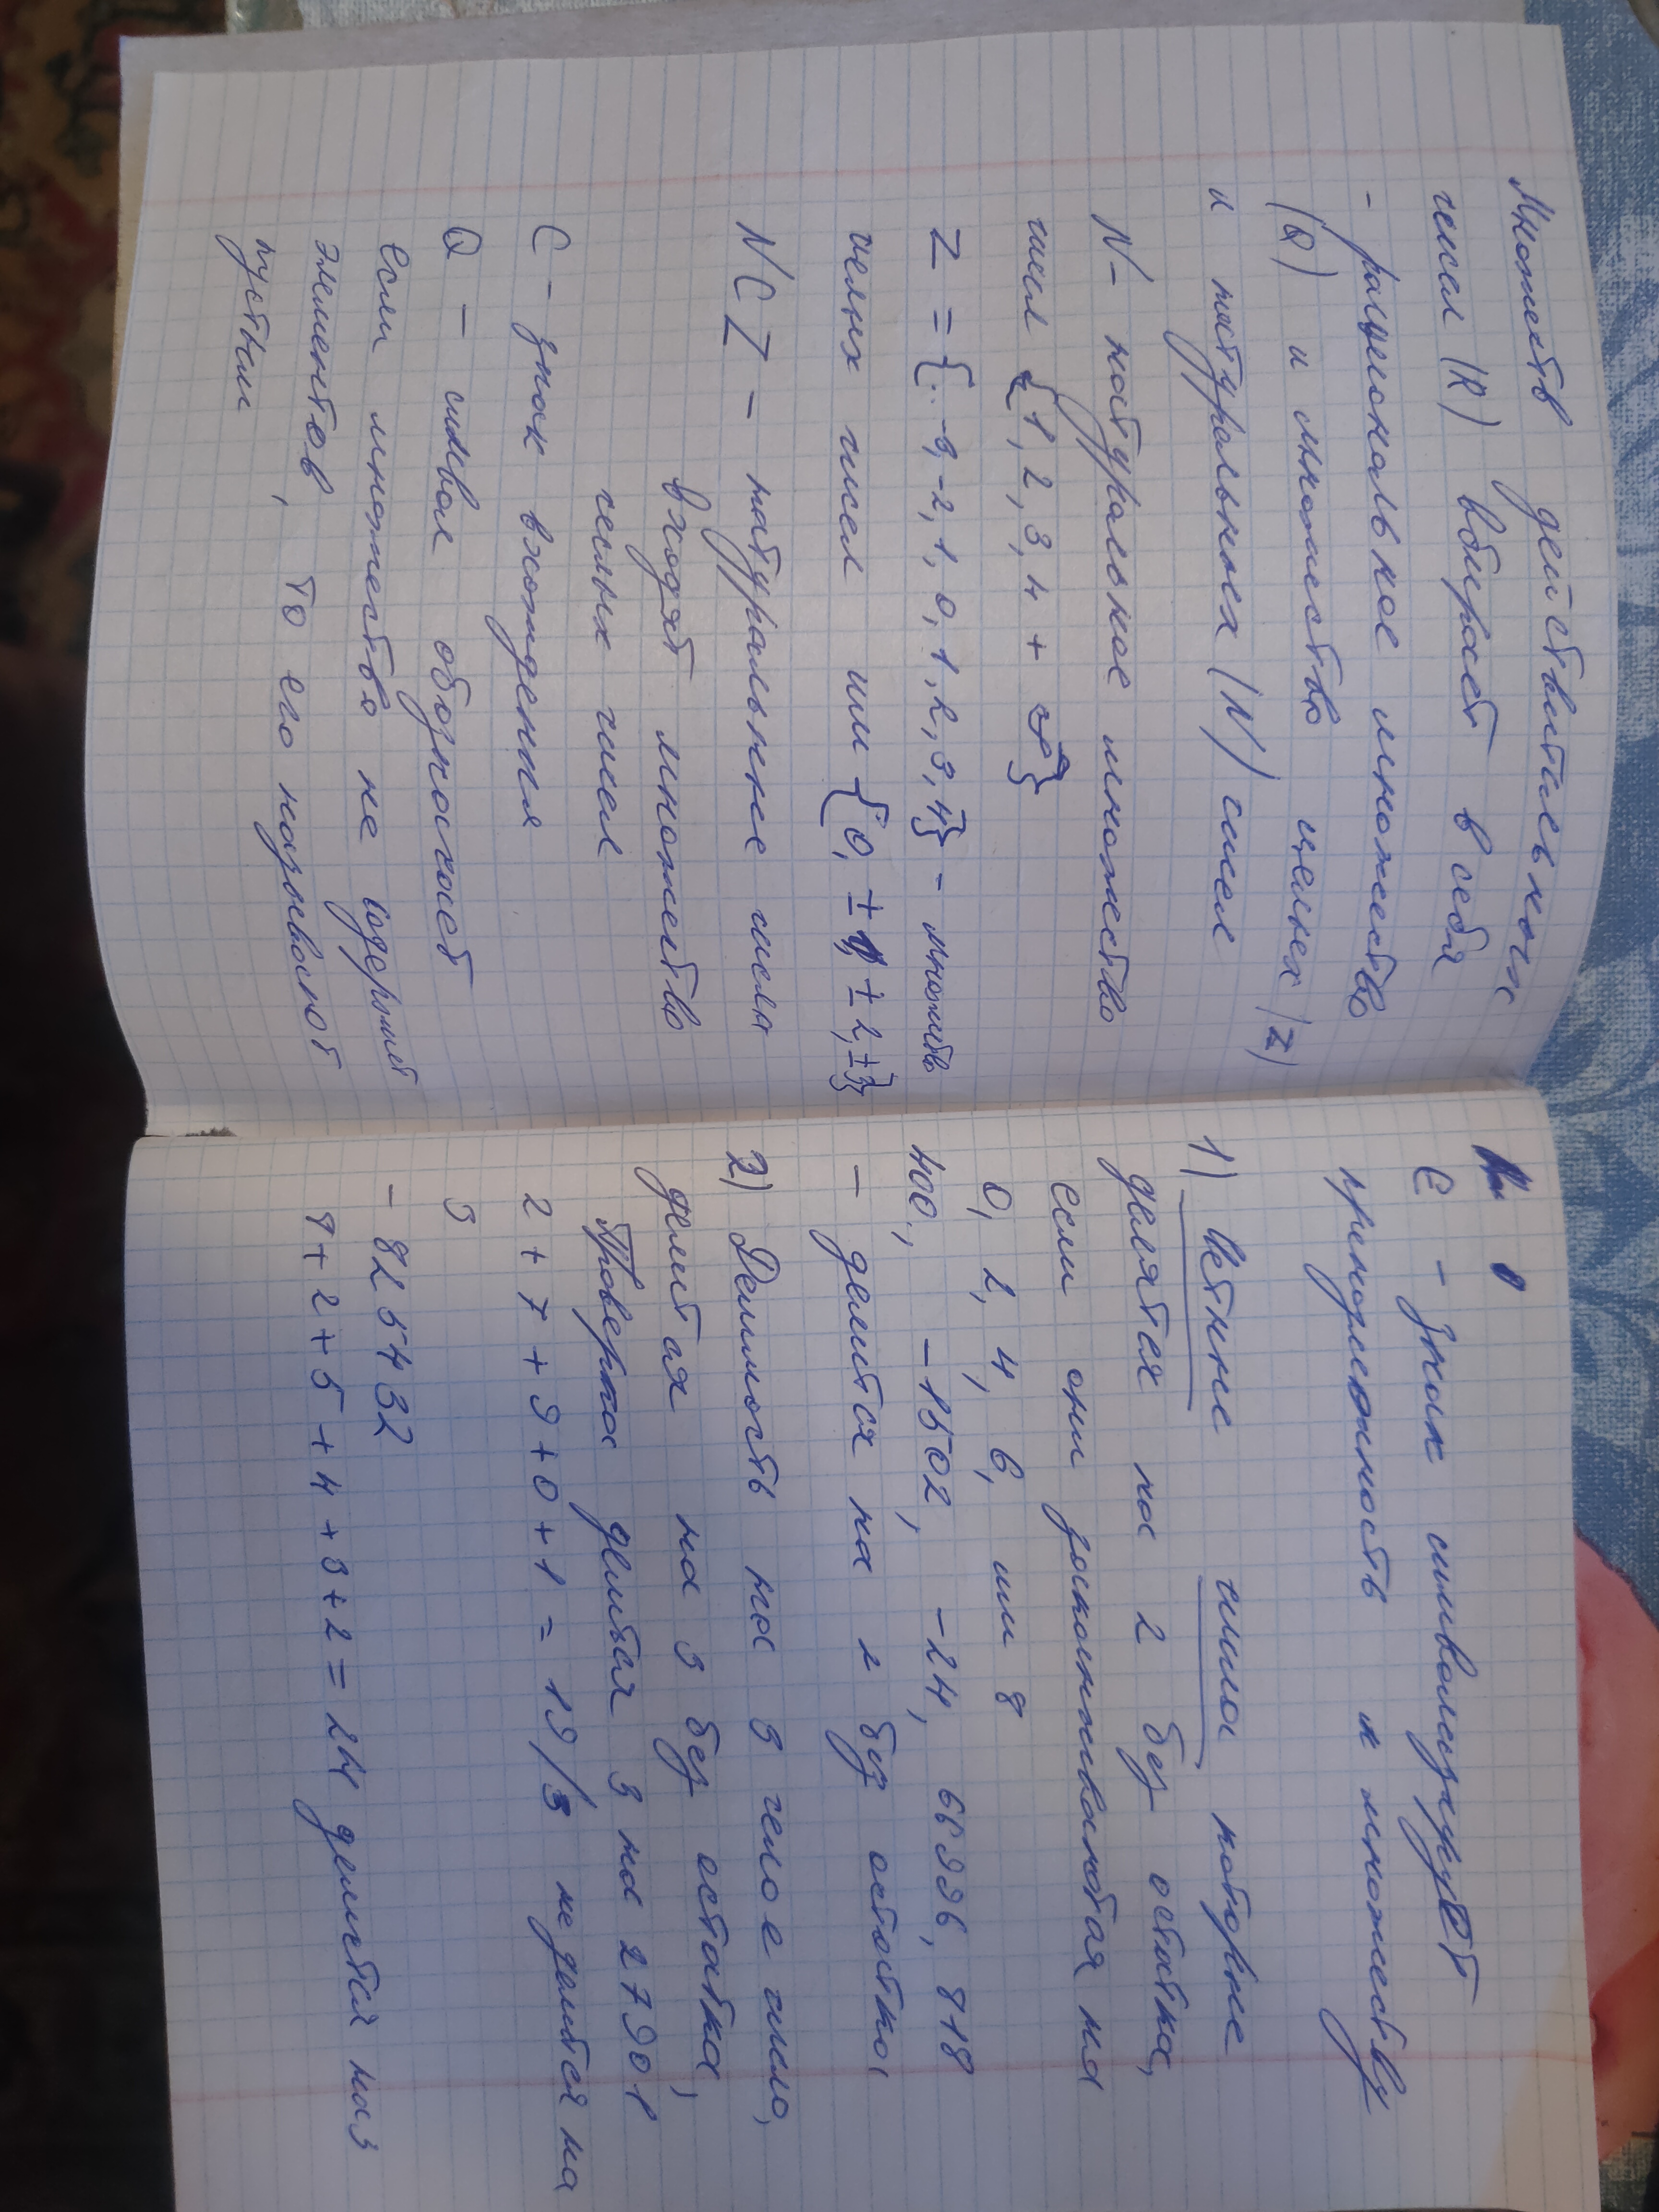 Множеств действительных
чисел (R) вбирает в себя
- рациональное множество
(Q) и множество целых (Z)
и натуральных (N) чисел
N - натуральное множество
чисел {1, 2, 3, 4 + ∞}
Z = {...-3, -2, 1, 0, 1, 2, 3, 4} - множство
целых чисел или {0, ± 1, ± 2, ± 3}
N C Z - натуральные числа
входят множество
целых чисел
C - знак вхождения
Q - символ обозначает
Если множество не содержит
элементов, то его называют
пустым
Є - знак символизирует
принадлежность к множеству
1) Четные числа которые
делятся на 2 без остатка,
если они заканчиваются на
0, 2, 4, 6, или 8
400, -1502, -24, 66996, 818
- делится на 2 без остатка
2) Делимость на 3 целое число,
делится на 3 без остатка,
Проверка делится 3 на 27901
2 + 7 + 9 + 0 + 1 = 19/3 не делится на
3
- 825432
8 + 2 + 5 + 4 + 3 + 2 = 24 делится на 3